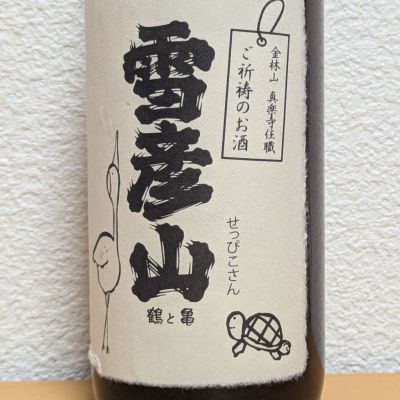 金林山 真楽寺住職
ご祈祷のお酒
雪彦山
せっぴこさん
鶴と亀